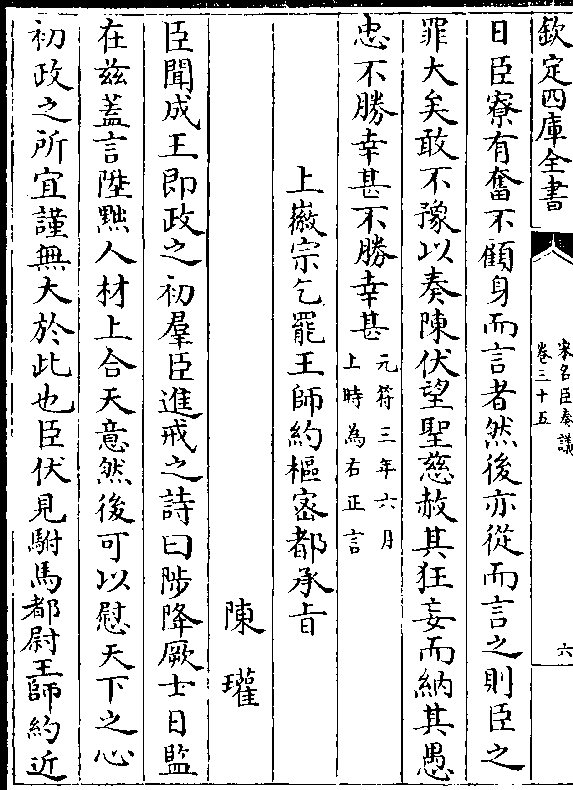 欽定四庫全書
宋名臣奏議
卷三十五
六
日臣寮有奮不顧身而言者然後亦從而言之則臣之
罪大矣敢不豫以奏陳伏望聖慈赦其狂妄而納其愚
忠不勝幸甚不勝幸甚
元符三年六月
上時為右正言
上徽宗乞罷王師約樞密都承旨
陳瓘
臣聞成王即政之初羣臣進戒之詩曰陟降厥士日監
在茲蓋言陞黜人材上合天意然後可以慰天下之心
初政之所宜謹無大於此也臣伏見駙馬都尉王師約近